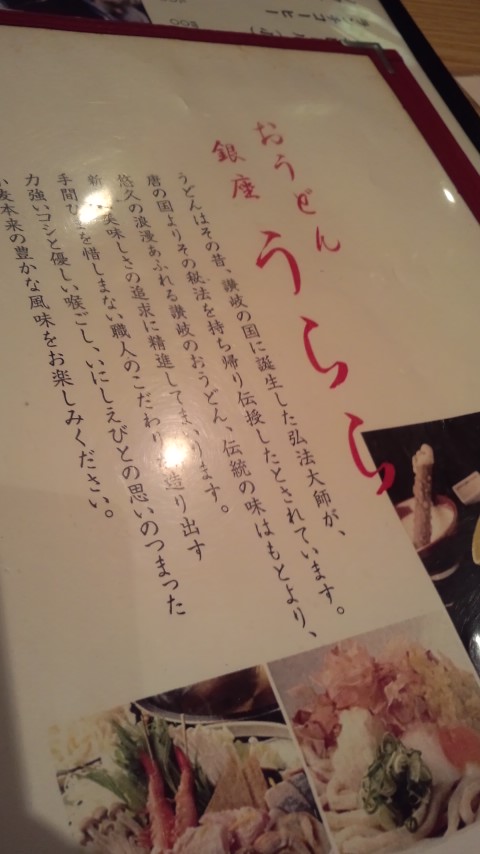 おうどん
銀座
うらら
うどんはその昔、讃岐の国に誕生した弘法大師が、
唐の国よりその秘法を持ち帰り伝授したとされています。
悠久の浪漫あふれる讃岐のおうどん、伝統の味はもとより、
新 美味しさの追求に精進してまいります。
手間ひ を惜しまない職人のこだわり 造り出す
力強いコシと優しい喉ごし、いにしえびとの思いのつまった
小麦本来の豊かな風味をお楽しみください。
ランチコーヒー